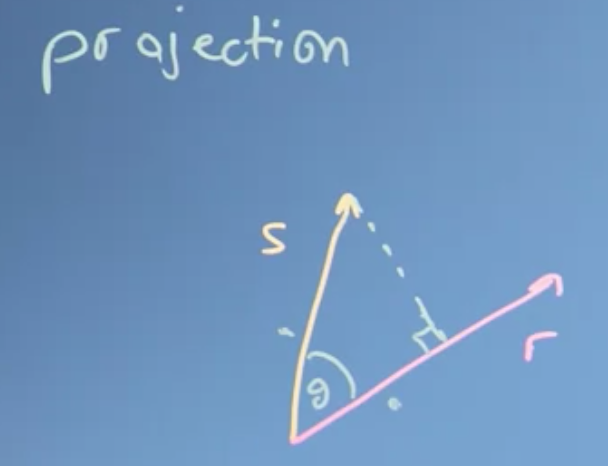 projection
s
r
θ